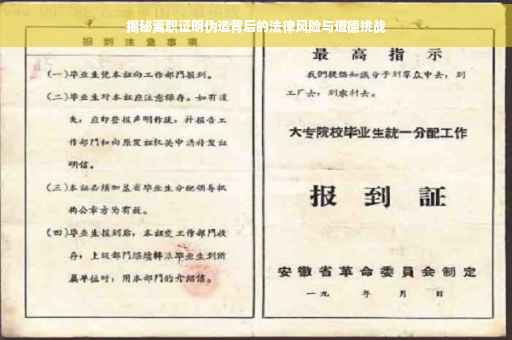 揭秘离职证明伪造背后的法律风险与道德挑战
报到注意事项
(一)毕业生凭本证向工作部门报到。
(二)毕业生对本证应注意保存。如有遗
失,应即登报声明作废,并报告工
作部门和向原发证机关申请补发证
明信。
(三)本证必须加盖省毕业生分配领导机
构公章方为有效。
(四)毕业生报到后,本证交工作部门收
存;上级部门
毕业生到所
属单位时,用本部门的介绍信。
最高指示
我们提倡知识分子到羣众中去,到
工厂去,到农村去。
大专院校毕业生統一分配工作
报到証
安徽省革命委員会制定
一九 年 月 日